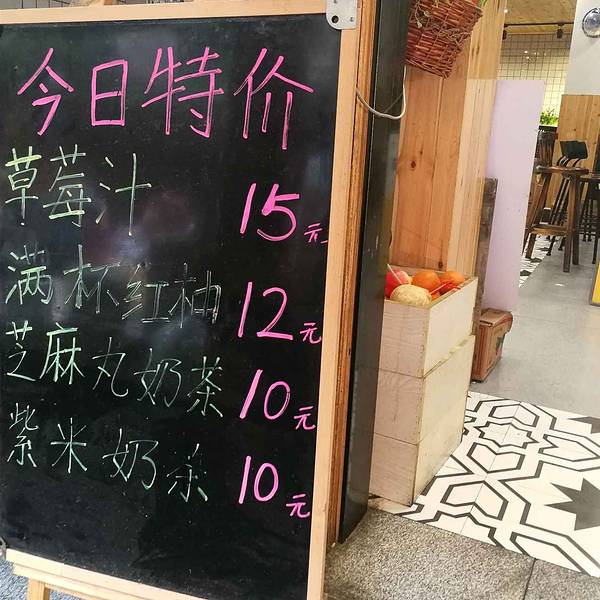 今日特价
草莓汁 15元
满杯红柚 12元
芝麻丸奶茶 10元
紫米奶茶 10元